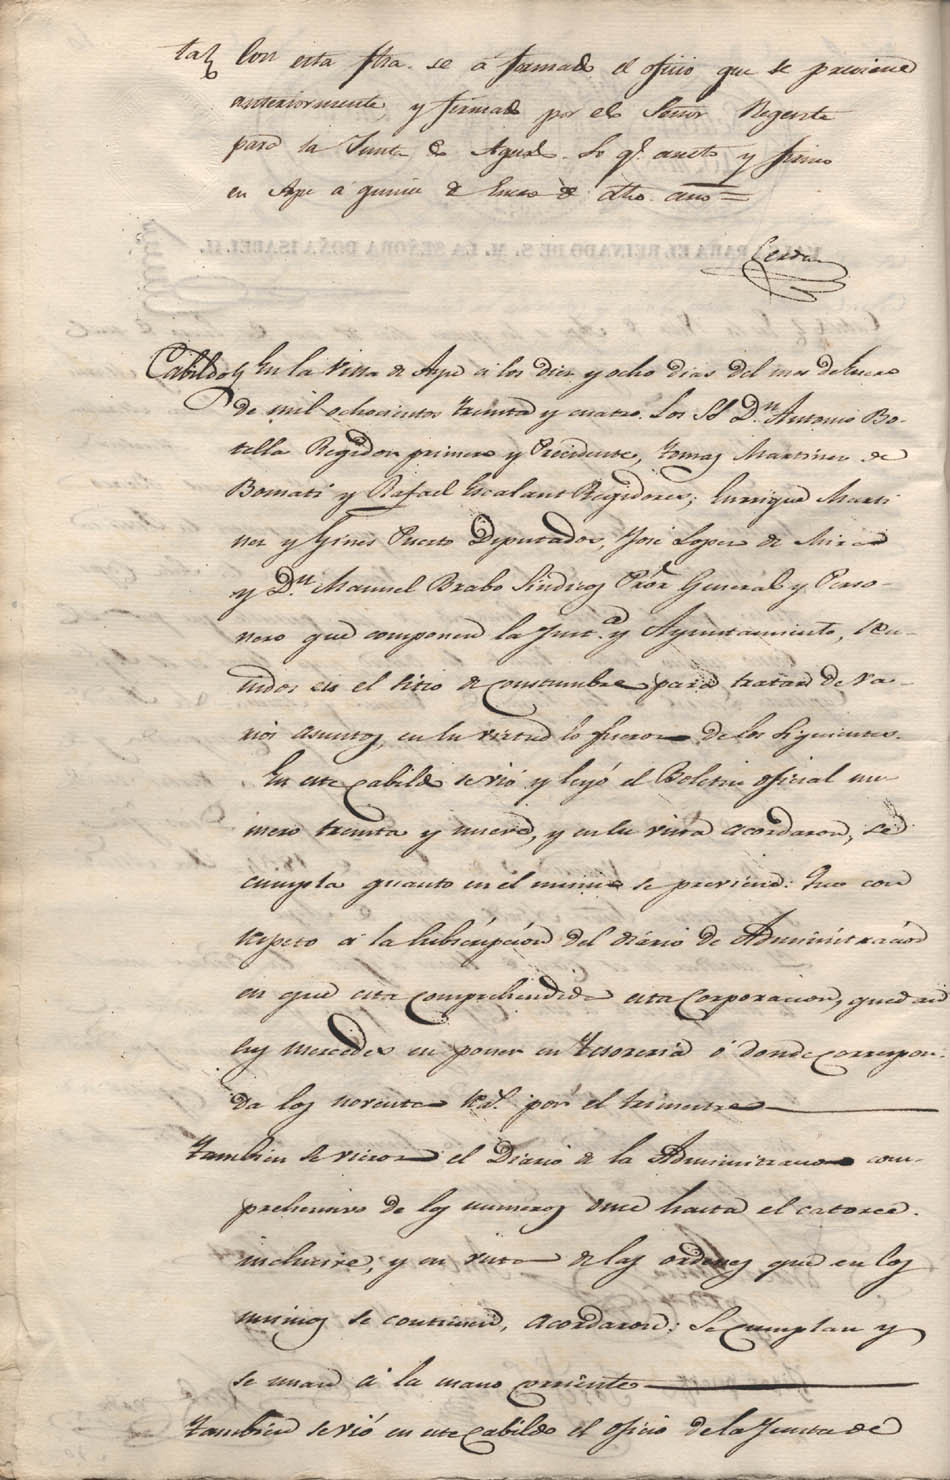 Con esta fha. se á formado el oficio que se previene
anteriormente, y firmado por el Señor Regente
para la Junta de Aguas. Lo qe. anoto y firmo
en Aspe á quince de Enero de dho. año =
Cerdan
VALGA PARA EL REINADO DE S. M. LA SEÑORA DOÑA ISABEL II.
Cabildo En la Villa de Aspe á los diez y ocho dias del mes de Enero
de mil ochocientos treinta y cuatro. Los SS. Dn. Antonio Bo-
tella Regidor primero y Precidente, Tomas Martinez de
Bomati y Rafael Escalant Regidores; Enrrique Marti
nez y Gines Puerto Diputados, José Lopez de
y Dn. Manuel Brabo Sindicos Pror. General y Perso-
nero que componen la Junt.a y Ayuntamiento, reu-
nidos en el sitio de constumbre para tratar de va-
rios asuntos, en su virtud lo fueron de los siguientes.
En este cabildo se vió y leyó el Boletin oficial nu-
mero treinta y nueve, y en su vista acordaron, se
cumpla quanto en el mismo se previene: Que con
respeto á la subscripcion del diario de Administracion
en que esta comprehendida esta Corporacion, quedan
sus mercedes en poner en Tesoreria ó donde correspon-
da los noventa rs. por el trimestre
Tambien se vieron el Diario de la Administracion com-
prehensivo de los numeros once hasta el catorce
inclusive, y en vista de las ordenes que en los
mismos se contienen, acordaron: Se cumplan y
se unan á la mano corriente
Tambien se vió en este Cabildo el oficio de la Junta de